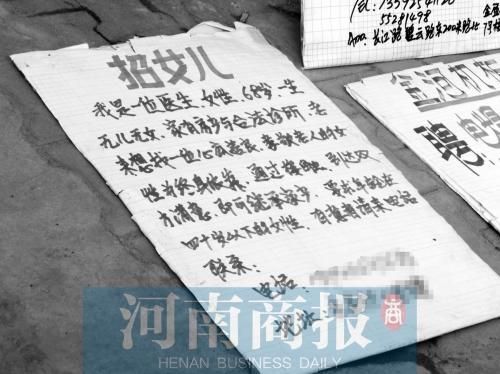 招女儿
我是一位医生,女性,68岁一生
无儿无女,家有房产与合法诊所,老
来想找一位心底善良,孝敬老人的女
性为终身依靠,通过接触,到达双
方满意,即可继承家产,要求年龄在
四十岁以下的女性,有意者请来电话
联系:
电话:
现活:
Tel:
55281498
长江路
金河
聘
河南商报
商
HENAN BUSINESS DAILY